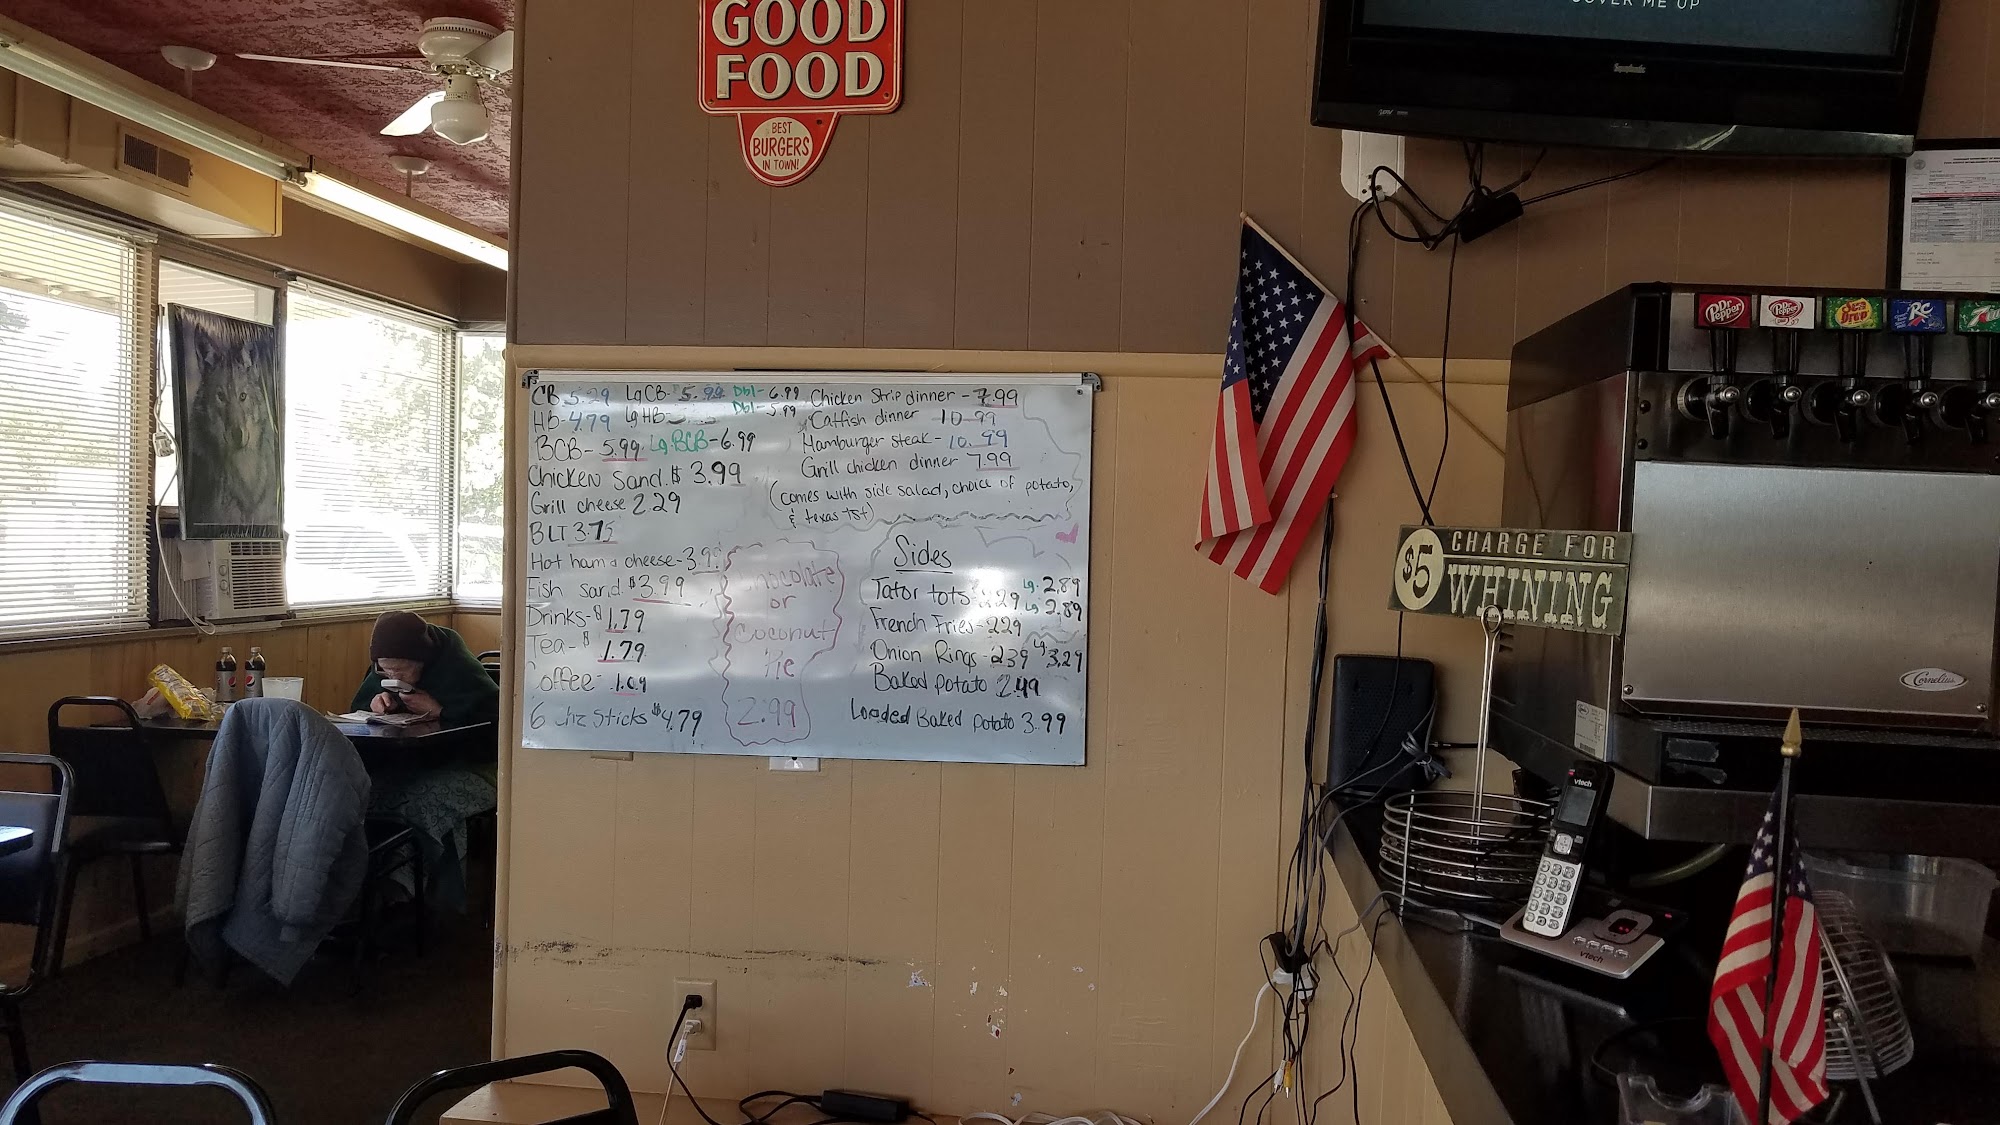 GOOD
FOOD
BEST
BURGERS
IN TOWN!
COVER ME UP
CB 5.29 Lg CB-5.99 Dbl-6.99
HB-4.79 Lg HB- Dbl-5.99
BCB-5.99 Lg BCB-6.99
Chicken Sand. $3.99
Grill cheese 2.29
BLT 3.75
Hot ham & cheese-3.9
Fish sand. $3.99
Drinks-$1.79
Tea-$1.79
Coffee-1.09
6 chz Sticks $4.79
Chicken Strip dinner-7.99
Catfish dinner 10.99
Hamburger steak-10.99
Grill chicken dinner 7.99
(comes with side salad, choice of potato,
& texas tst)
Chocolate
or
Coconut
Pie
2.99
Sides
Tator tots 2.29 Lg. 2.89
French Fries-229 Lg 2.89
Onion Rings-239 Lg 3.29
Baked potato 2.49
Loaded Baked potato 3.99
$5 CHARGE FOR
WHINING
Dr Pepper
Dr Pepper
Sun Drop
RC
7U
Cornelius
vtech
vtech